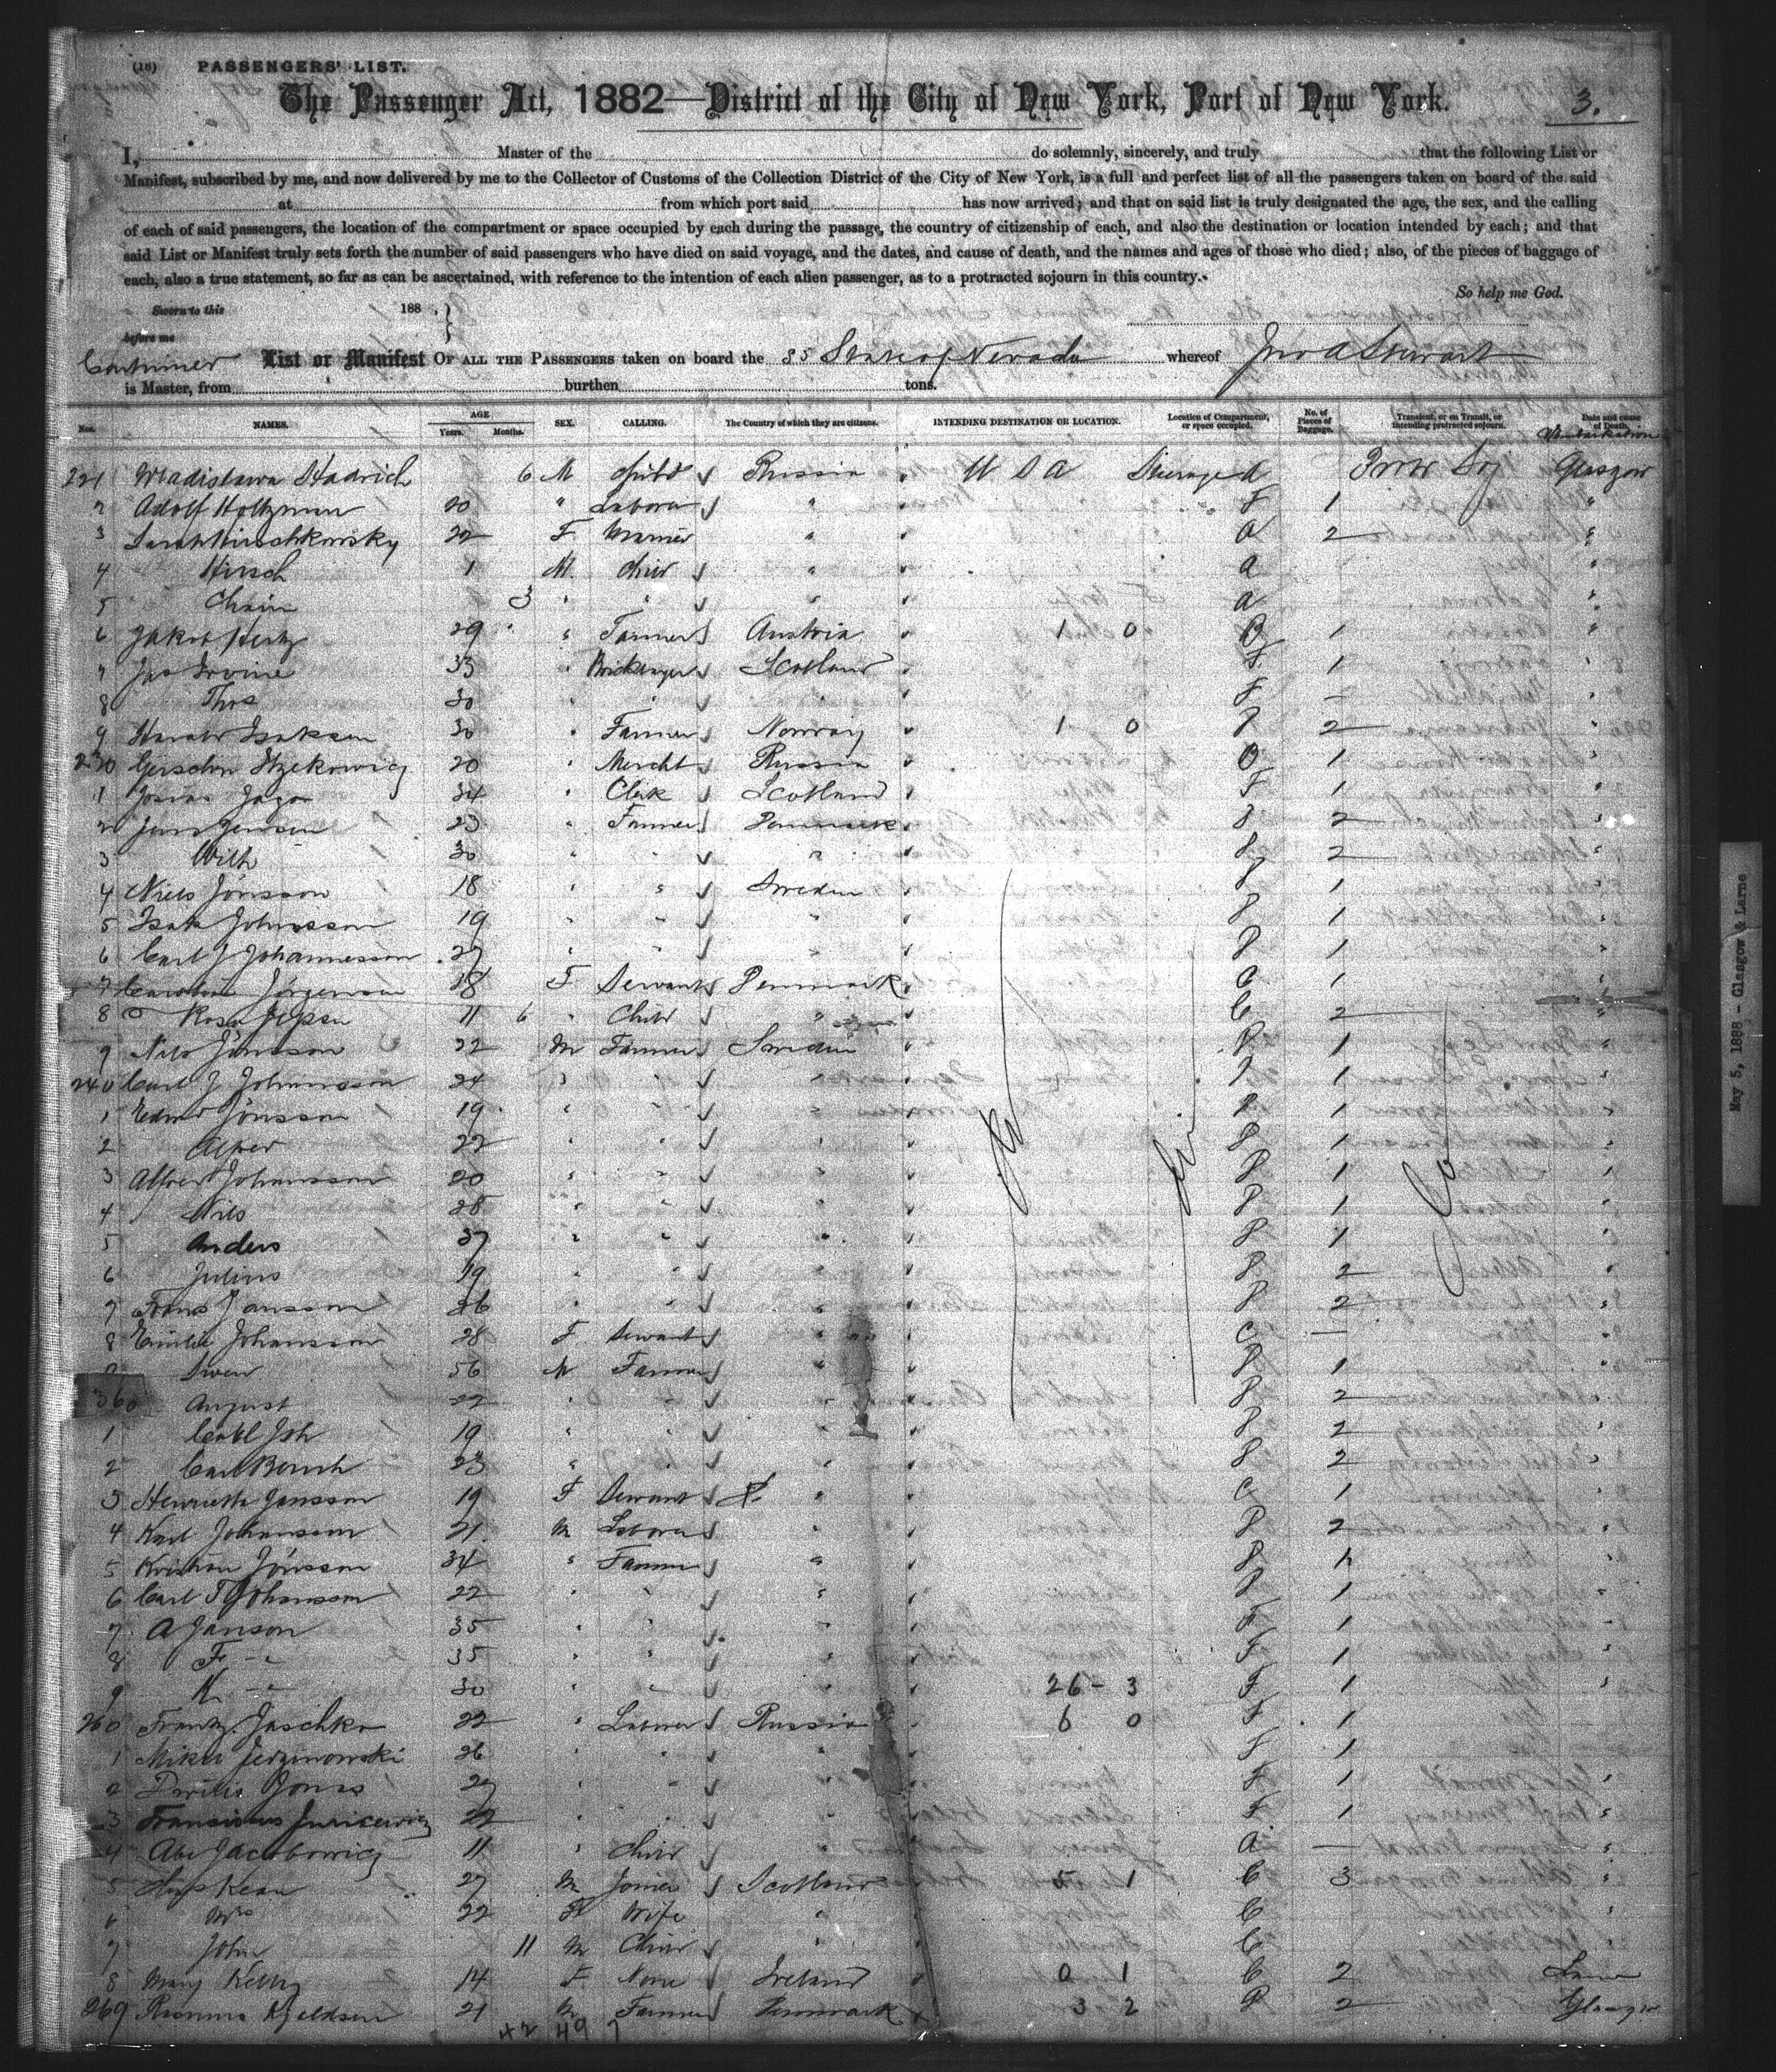 (18) PASSENGERS' LIST.
The Passenger Act, 1882—District of the City of New York, Port of New York. 3.
I, Master of the do solemnly, sincerely, and truly that the following List or
Manifest, subscribed by me, and now delivered by me to the Collector of Customs of the Collection District of the City of New York, is a full and perfect list of all the passengers taken on board of the said
at from which port said has now arrived; and that on said list is truly designated the age, the sex, and the calling
of each of said passengers, the location of the compartment or space occupied by each during the passage, the country of citizenship of each, and also the destination or location intended by each; and that
said List or Manifest truly sets forth the number of said passengers who have died on said voyage, and the dates, and cause of death, and the names and ages of those who died; also, of the pieces of baggage of
each, also a true statement, so far as can be ascertained, with reference to the intention of each alien passenger, as to a protracted sojourn in this country.
So help me God.
Sworn to this 188 .
before me
List or Manifest OF ALL THE PASSENGERS taken on board the SS State of Nevada whereof Jno A Stewart
is Master, from burthen tons.
Nos. NAMES. AGE Years. Months. SEX. CALLING. The Country of which they are citizens. INTENDING DESTINATION OR LOCATION. Location of Compartment, or space occupied. No. of Pieces of Baggage. Transient, or on Transit, or intending protracted sojourn. Date and cause of Death.
221 6 M Child Russia U S A Steerage A Glasgow
2 Adolf 20 " Laborer " F 1 "
3 Sarah Hirschkowsky 22 F " A 2 "
4 Hirsch 1 M Child " A "
5 Chain 3 " " " A "
6 Jakob 29 " Farmer Austria 1 0 B 1 "
7 Jas Irvine 33 " Scotland F 1 "
8 Thos 30 " " " F —
9 Isaksen 30 " Farmer Norway 1 0 P 2 "
230 Gerschon 20 " Mercht Russia B 1 "
1 34 " Clerk Scotland F 1 "
2 Jens Jensen 23 " Farmer Denmark P 2 "
3 Wilh 30 " " " P 2 "
4 Niels Jönsson 18 " " Sweden P 1 "
5 Isak Johnsson 19 " " " P 1 "
6 Carl J Johannesson 27 " " " P 1 "
7 Jörgensen 18 F Servant Denmark C 1 "
8 Rosa 11 6 " Child " C 2 "
9 Nils Jönsson 22 M Farmer Sweden P 1 "
240 Carl J Johansson 24 " " " P 1 "
1 Jönsson 19 " " " P 1 "
2 22 " " " P 1 "
3 Alfred Johansson 20 " " " P 1 "
4 Nils 28 " " " P 1 "
5 Anders 37 " " " P 1 "
6 Julius 19 " " " P 2 "
7 Frans Jansson 26 " " " P 2 "
8 Emilie Johansson 28 F Servant " C — "
Swen 56 M Farmer " P 1 "
360 August 22 " " " P 2 "
1 Carl Joh 19 " " " P 2 "
2 Carl 23 " " " P 2 "
3 Jansson 19 F Servant " C 1 "
4 Karl Johansson 21 M Laborer " P 2 "
5 Jönsson 34 " Farmer " P "
6 Carl Johansson 22 " " " P 1 "
7 A Janson 35 " " " F 1 "
8 F 35 " " " F 1 "
9 30 " " " 26 - 3 F 1 "
260 Frantz Jaschko 22 " Laborer Russia 6 0 F 1 "
1 26 " " " 1 "
2 Jonas 27 " " " F 1 "
3 22 " " " F 1 "
4 Abe Jacobowicz 11 " Child " A — "
5 Kean 27 M Joiner Scotland 5 1 C 3 "
6 Mrs 22 F Wife " C "
7 John 11 M Child " C "
8 Mary Kelly 14 F None Ireland 0 1 C 2 Larne
269 Rasmus Kjeldsen 21 M Farmer Denmark 3 2 P 2 Glasgow
42 49
May 5, 1888 - Glasgow & Larne